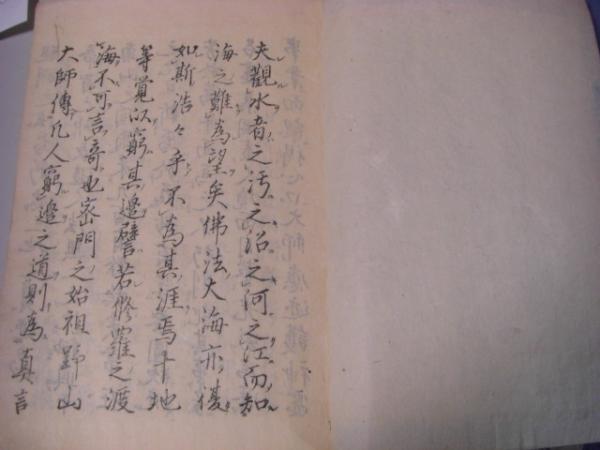 夫觀水者之沔之沼之河之江而知
海之難為望矣佛法大海亦復
如斯浩々乎不為其涯焉十地
等覚以窮其邊譬若修羅之渡
海不可言奇也密門之始祖野山
大師傳凡人窮邊之道則為真言